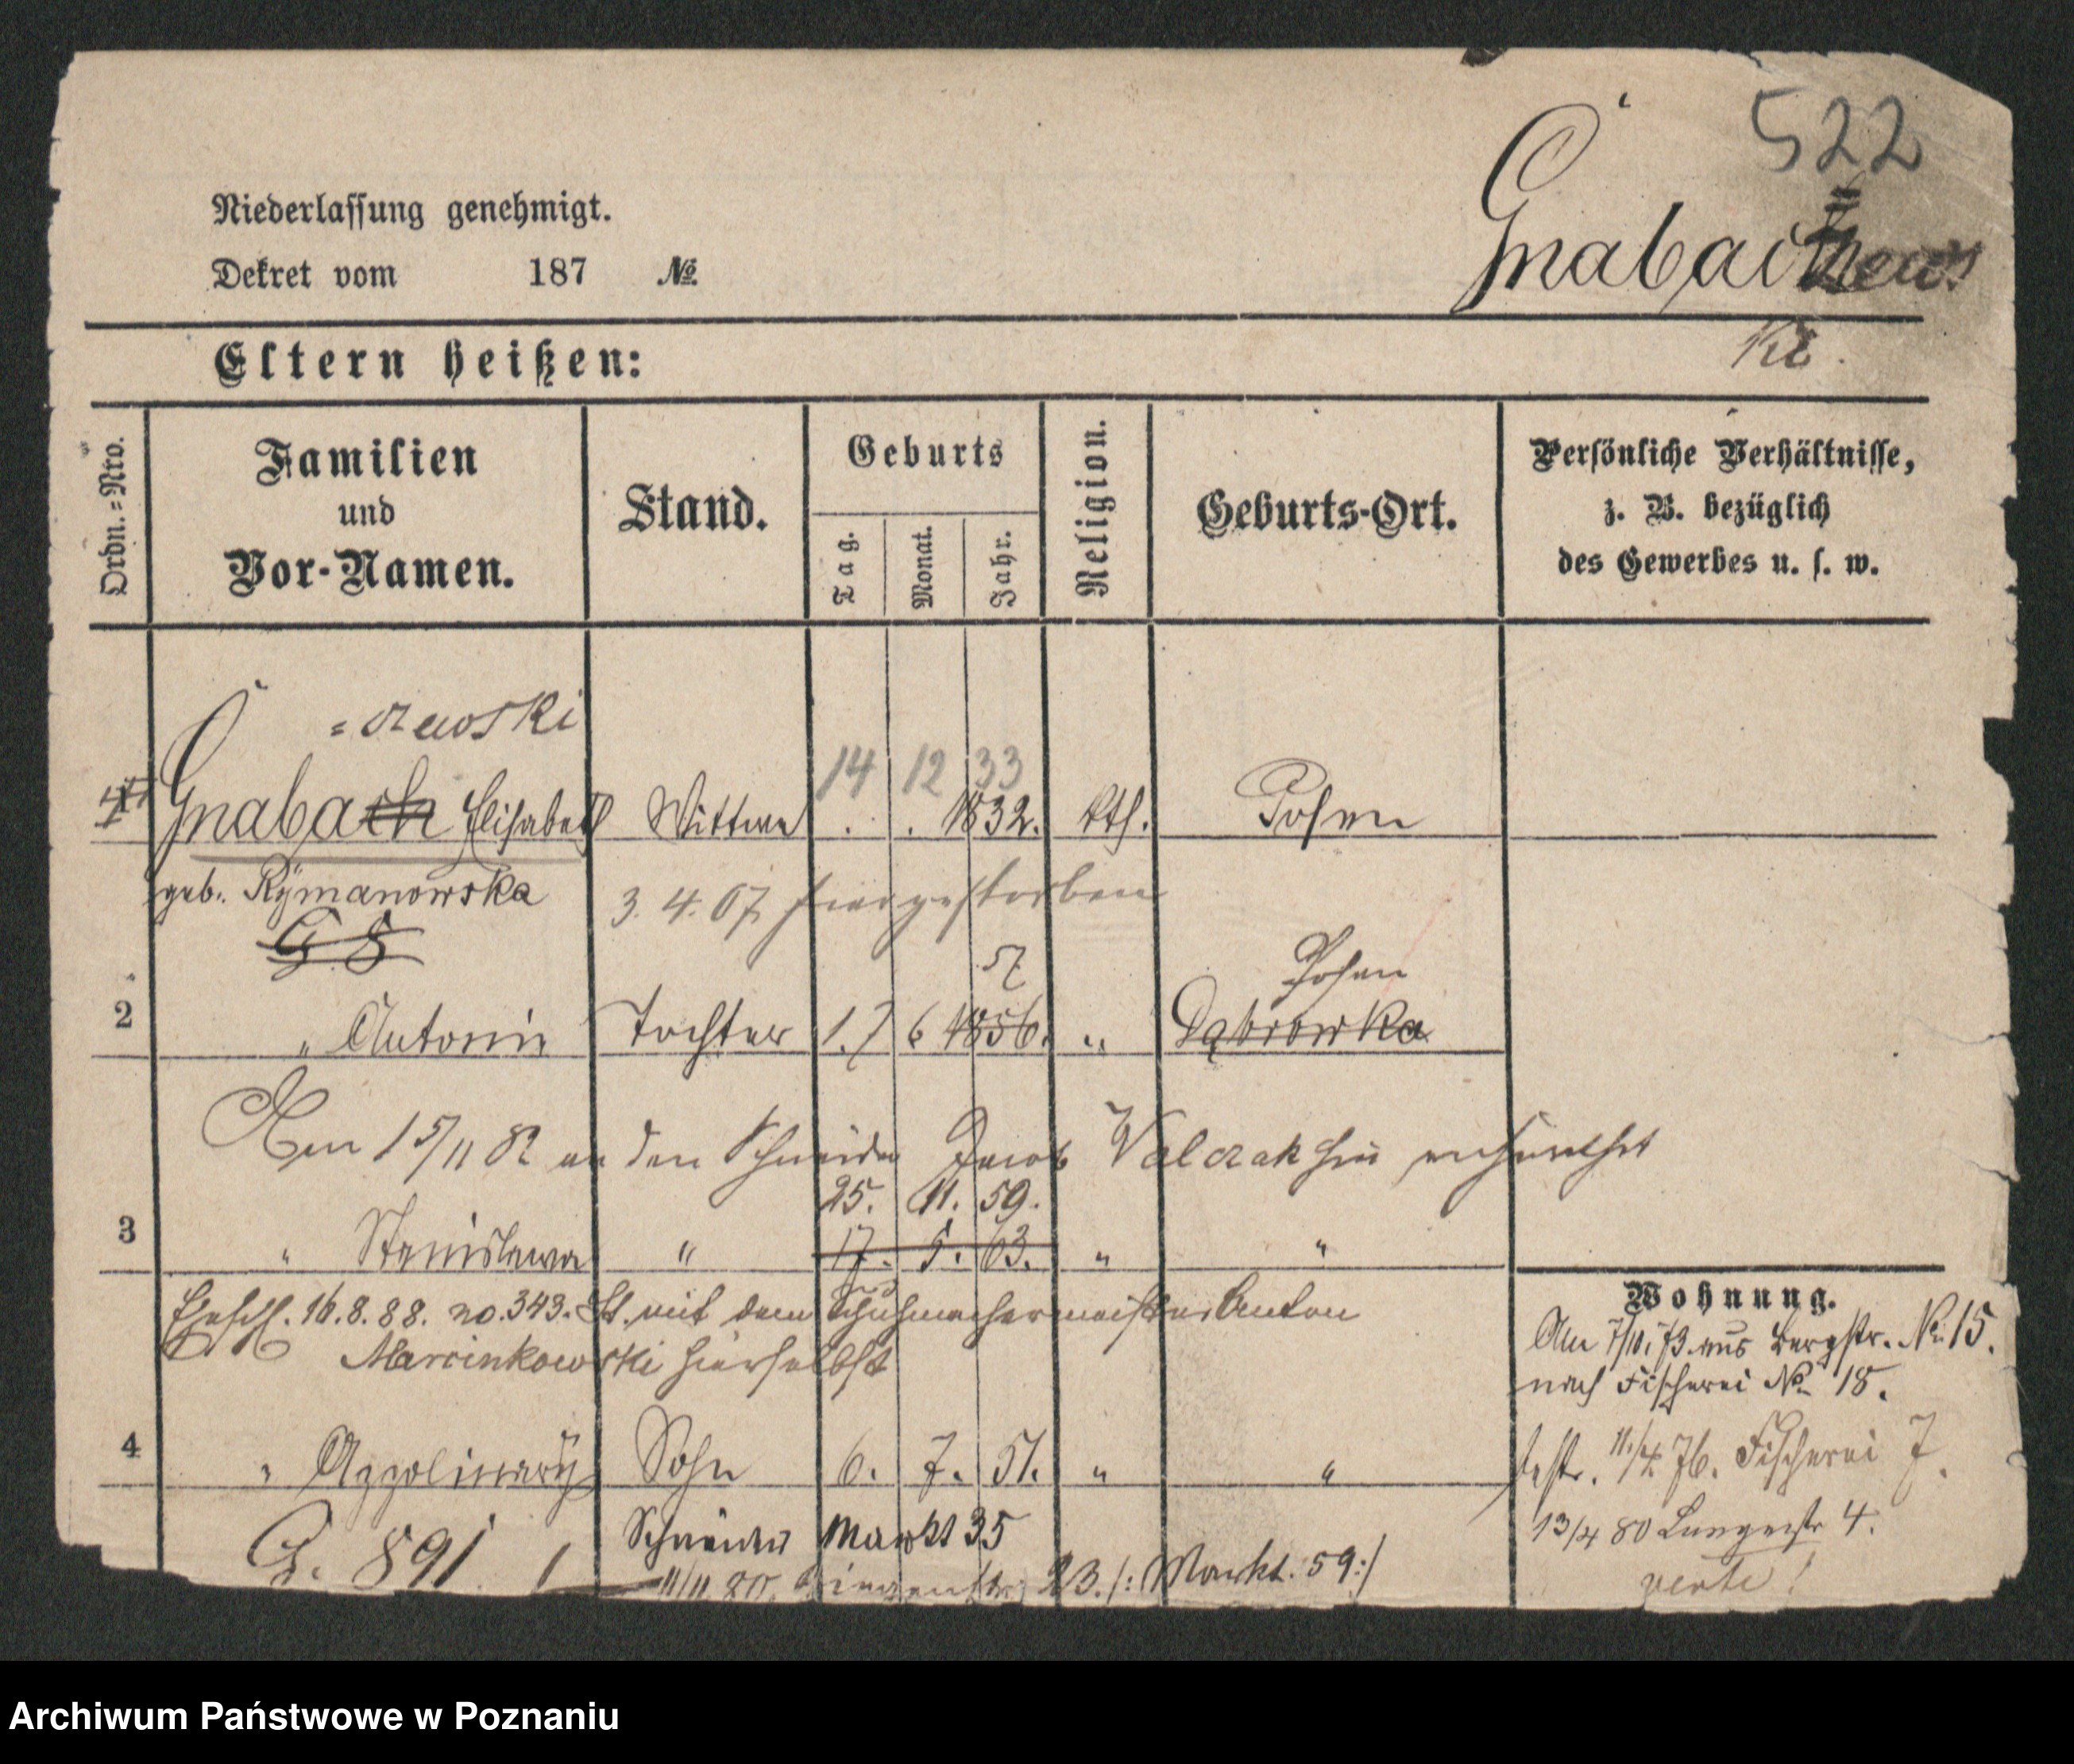 522
Niederlassung genehmigt.
Dekret vom 187 №
Gnabaczews
ki.
Eltern heißen:
Ordn.=Nro.
Familien
und
Vor-Namen.
Stand.
Geburts
Tag.
Monat.
Jahr.
Religion.
Geburts-Ort.
Persönliche Verhältnisse,
z. B. bezüglich
des Gewerbes u. s. w.
=czewski
14 12 33
1 Gnabach Elisabeth Wittwe . . 1832. kth. Posen
geb. Rÿmanowska
3. 4. 07 hier gestorben
G 8
57 Posen
2 " Antonie Tochter 17 6 1856. " Dąbrowka
Am 15/11 82 an den Schneider Jacob Walczak hier verheirathet
25. 11. 59.
3 " Stanislawa " 17. 5. 63. " "
Ehesch. 16.8.88. no. 343. St. mit dem Schuhmachermeister Anton
Marcinkowski hierselbst
4 " Appolinary Sohn 6. 7. 51. " "
G. 891 Schneider Markt 35
11/11 80. 23. /: Markt. 59:/
Wohnung.
Am 7/10. 73 aus Bergstr. No 15.
nach Fischerei No 18.
11./4. 76. Fischerei 7.
13/4 80 Langestr 4.
verte!
Archiwum Państwowe w Poznaniu